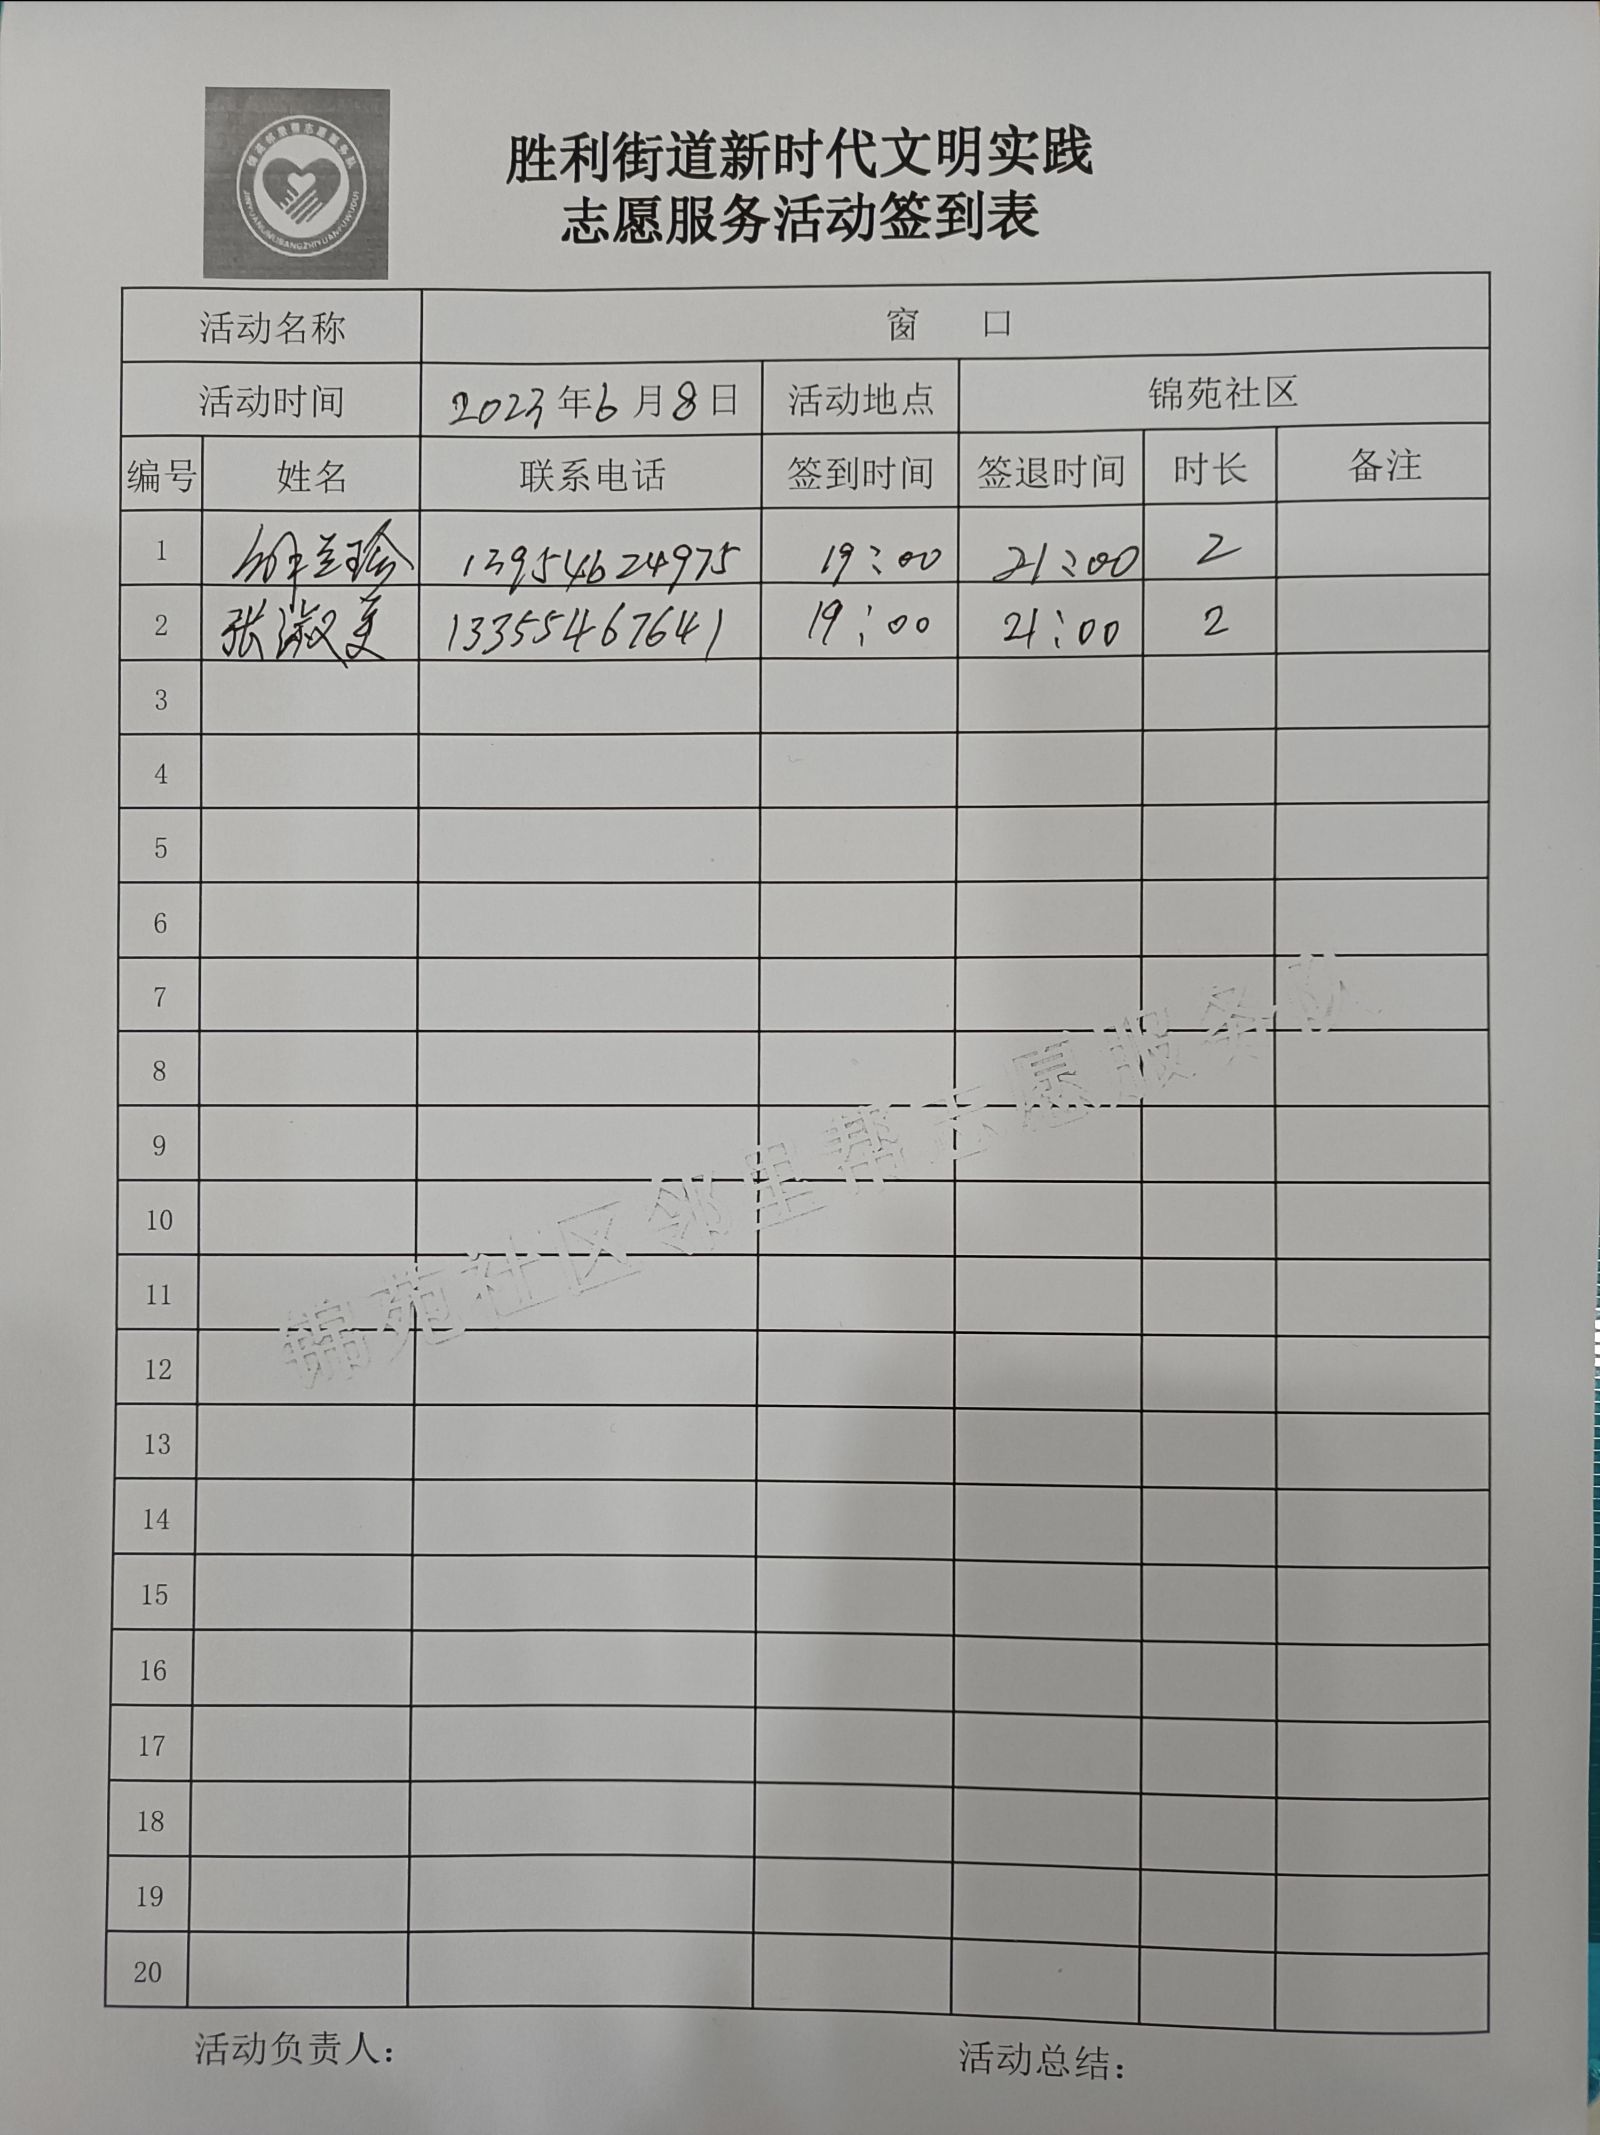 锦苑邻里帮志愿服务队
JINYUANLINLIBANGZHIYUANFUWUDUI
胜利街道新时代文明实践
志愿服务活动签到表
活动名称 窗 口
活动时间 2023年6月8日 活动地点 锦苑社区
编号 姓名 联系电话 签到时间 签退时间 时长 备注
1 兰珍 13954624975 19:00 21:00 2
2 张淑美 13355467641 19:00 21:00 2
3
4
5
6
7
8
9
10
11
12
13
14
15
16
17
18
19
20
锦苑社区邻里帮志愿服务队
活动负责人: 活动总结: